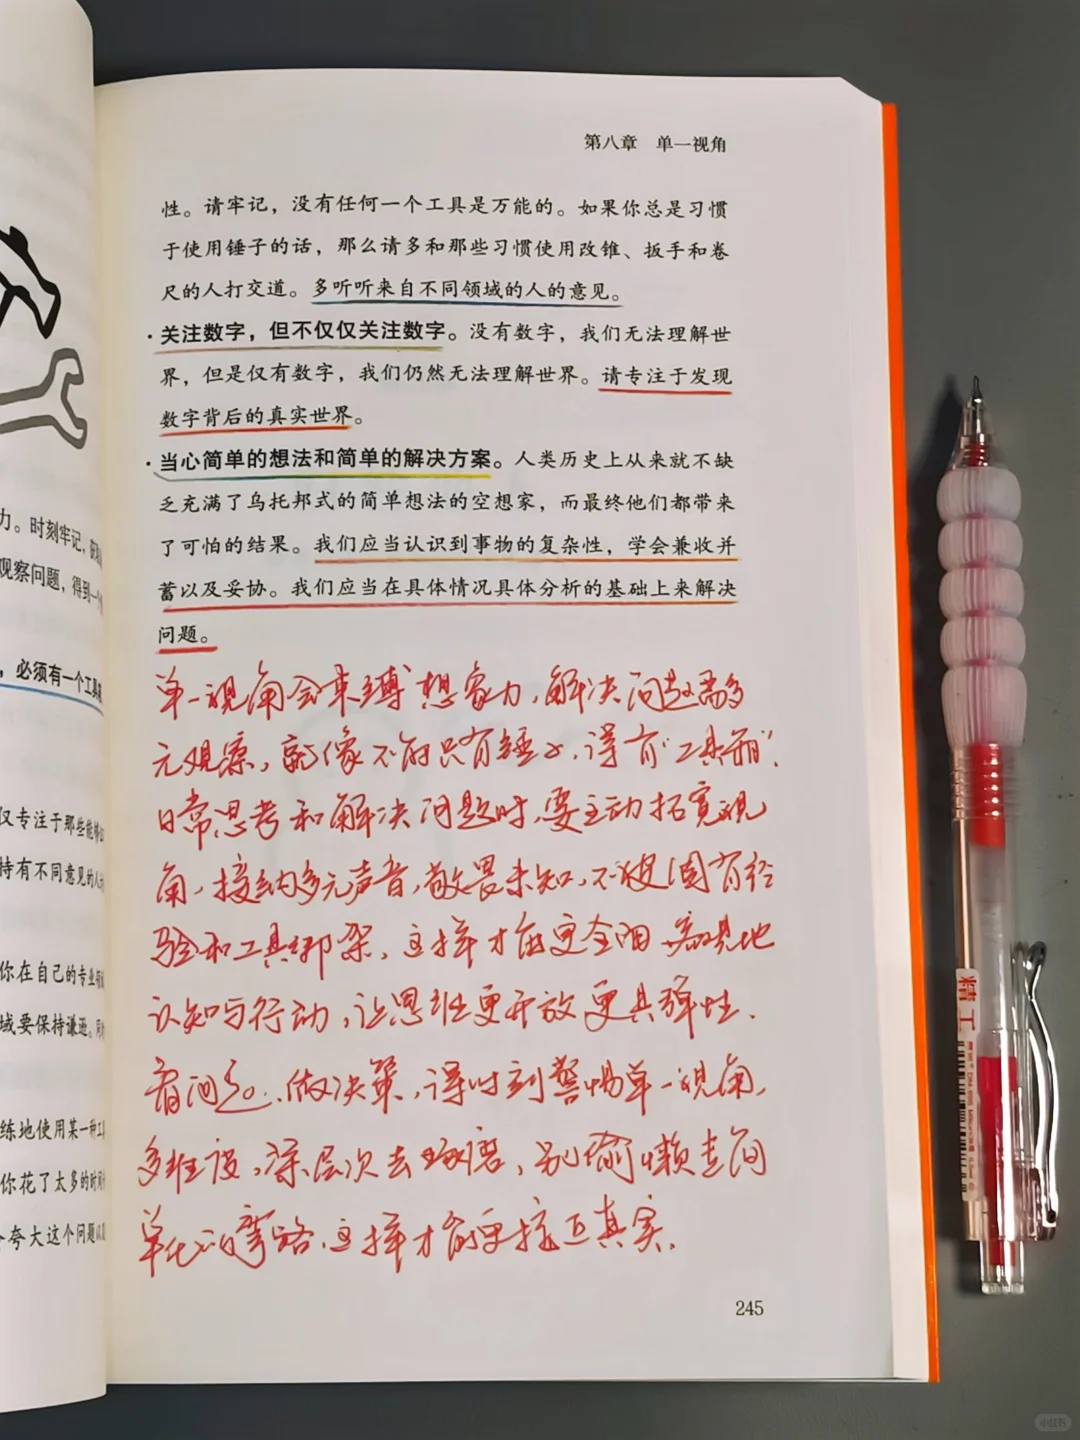 第八章 单一视角
性。请牢记，没有任何一个工具是万能的。如果你总是习惯
于使用锤子的话，那么请多和那些习惯使用改锥、扳手和卷
尺的人打交道。多听听来自不同领域的人的意见。
·关注数字，但不仅仅关注数字。没有数字，我们无法理解世
界，但是仅有数字，我们仍然无法理解世界。请专注于发现
数字背后的真实世界。
·当心简单的想法和简单的解决方案。人类历史上从来就不缺
乏充满了乌托邦式的简单想法的空想家，而最终他们都带来
了可怕的结果。我们应当认识到事物的复杂性，学会兼收并
蓄以及妥协。我们应当在具体情况具体分析的基础上来解决
问题。
单一视角会束缚想象力，解决问题需多
元观察，就像不能只有锤子，得有“工具箱”.
日常思考和解决问题时，要主动拓宽视
角，接纳多元声音，敬畏未知，不被固有经
验和工具绑架，这样才能更全面、客观地
认知与行动，让思维更开放更具弹性.
看问题、做决策，得时刻警惕单一视角，
多维度，深层次去琢磨，别偷懒走简
单化的弯路，这样才能更接近真实.
245
力。时刻牢记，
观察问题，得到一个
，必须有一个工具
仅专注于那些能够
持有不同意见的人
你在自己的专业
域要保持谦逊。
练地使用某一种工
你花了太多的时间
夸大这个问题
精工
小红书